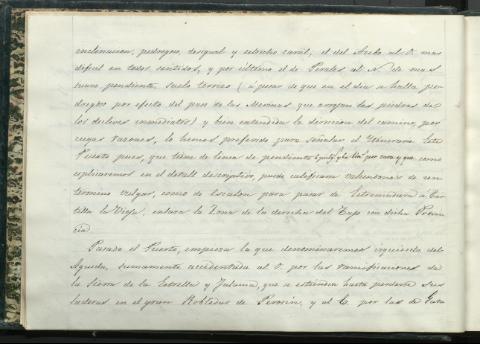 inclinacion, pedregoso, desigual y estrecho carril, el del Acebo al O. mas
dificil en todos sentidos, y por último el de Perales al N. de mas
suave pendiente, suelo terrizo (á pesar de que en el dia se halla pe-
dregoso por efecto del paso de las Merinas que arrojan las piedras de
los declives inmediatos) y bien entendida la direccion del camino, por
cuyas razones, lo hemos preferido para señalar el Itinerario. Este
Puerto pues, que tiene de linea de pendiente y por cuya que como
esplicaremos en el detall descriptivo, puede calificarse valiendonos de un
termino vulgar, como de Escalon para pasar de Estremadura á Cas-
tilla la Vieja, enlaza la Zona de la derecha del Tajo con dicha Provin-
cia.
Pasado el Puerto, empieza la que denominaremos izquierda del
Agueda, sumamente accidentada al O. por las ramificaciones de
la Sierra de la Estrella y Jalama, que se estienden hasta perderse sus
laderas en el gran Robledar de Perosin, y al E. por las de Gata